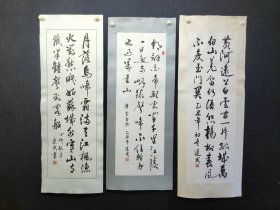 黄河遠上白雲間一片孤城萬
仞山羌笛何須怨楊柳春風
不度玉門關
朝辭白帝彩雲間千里江陵
一日還兩岸猿聲啼不住輕舟
已過萬重山
月落烏啼霜滿天江楓漁
火對愁眠姑蘇城外寒山寺
夜半鐘聲到客船